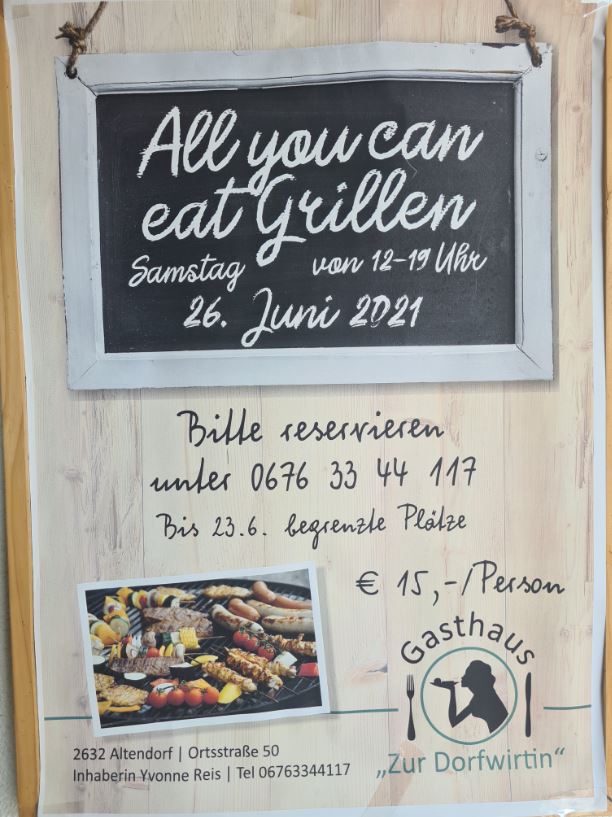 All you can
eat Grillen
Samstag von 12-19 Uhr
26. Juni 2021
Bitte reservieren
unter 0676 33 44 117
Bis 23.6. begrenzte Plätze
€ 15,-/Person
Gasthaus
„Zur Dorfwirtin“
2632 Altendorf | Ortsstraße 50
Inhaberin Yvonne Reis | Tel 06763344117